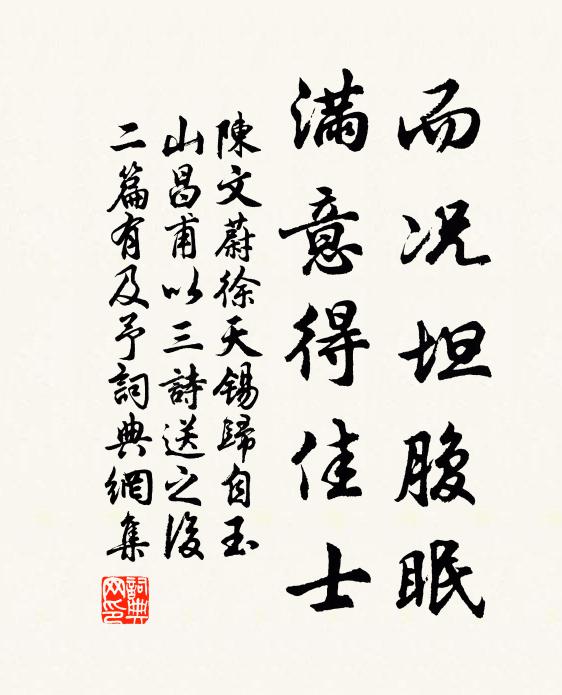 而况坦腹眠
滿意得佳士
陳文蔚徐天錫歸自玉
山昌甫以三詩送之後
二篇有及予詞典網集
詞典
网印